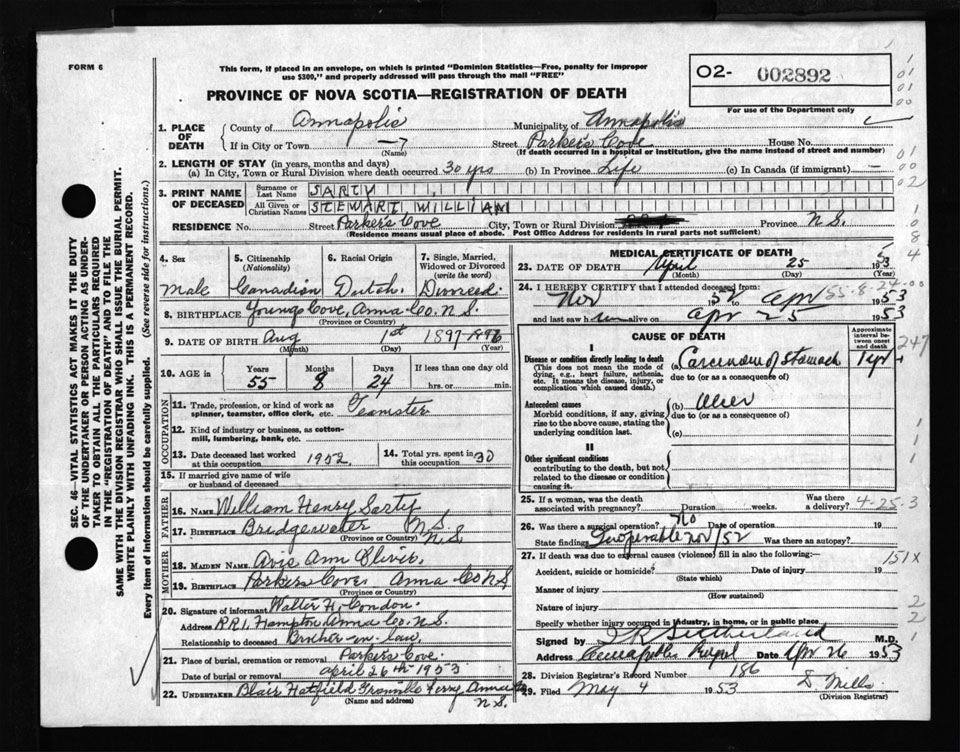 FORM 6
This form, if placed in an envelope, on which is printed "Dominion Statistics—Free, penalty for improper
use $300," and properly addressed will pass through the mail "FREE"
PROVINCE OF NOVA SCOTIA—REGISTRATION OF DEATH
O2- 002892
For use of the Department only
1. PLACE OF DEATH
County of Annapolis Municipality of Annapolis
If in City or Town (Name) Street Parker's Cove House No.
(If death occurred in a hospital or institution, give the name instead of street and number)
2. LENGTH OF STAY (in years, months and days)
(a) In City, Town or Rural Division where death occurred 30 yrs (b) In Province Life (c) In Canada (if immigrant) —
3. PRINT NAME OF DECEASED
Surname or Last Name SARTY
All Given or Christian Names STEWART WILLIAM
RESIDENCE No. Street Parker's Cove City, Town or Rural Division Province N.S.
(Residence means usual place of abode. Post Office Address for residents in rural parts not sufficient)
SEC. 46—VITAL STATISTICS ACT MAKES IT THE DUTY
OF THE UNDERTAKER OR PERSON ACTING AS UNDER-
TAKER TO OBTAIN ALL THE PARTICULARS REQUIRED
IN THE "REGISTRATION OF DEATH" AND TO FILE THE
SAME WITH THE DIVISION REGISTRAR WHO SHALL ISSUE THE BURIAL PERMIT.
WRITE PLAINLY WITH UNFADING INK. THIS IS A PERMANENT RECORD.
Every item of information should be carefully supplied. (See reverse side for instructions.)
4. Sex Male
5. Citizenship (Nationality) Canadian
6. Racial Origin Dutch
7. Single, Married, Widowed or Divorced (write the word) Divorced
8. BIRTHPLACE Youngs Cove, Anna. Co. N.S.
(Province or Country)
9. DATE OF BIRTH Aug 1st 1897 1896
(Month) (Day) (Year)
10. AGE in Years 55 Months 8 Days 24 If less than one day old hrs. or min.
OCCUPATION
11. Trade, profession, or kind of work as spinner, teamster, office clerk, etc. Teamster
12. Kind of industry or business, as cotton-mill, lumbering, bank, etc.
13. Date deceased last worked at this occupation 1952
14. Total yrs. spent in this occupation 30
15. If married give name of wife or husband of deceased
FATHER
16. NAME William Henry Sarty
17. BIRTHPLACE Bridgewater N.S.
(Province or Country) N.S.
MOTHER
18. MAIDEN NAME Avis Ann Oliver
19. BIRTHPLACE Parkers Cove Anna Co N.S
(Province or Country)
20. Signature of informant Walter H. Condon
Address R.R.1. Hampton Anna Co. N.S.
Relationship to deceased Brother-in-law
21. Place of burial, cremation or removal Parker's Cove
Date of burial or removal April 26th 1953
22. UNDERTAKER Blair Hatfield Granville Ferry Anna Co
(Name and address) N.S.
MEDICAL CERTIFICATE OF DEATH
23. DATE OF DEATH April 25 1953
(Month) (Day) (Year)
24. I HEREBY CERTIFY that I attended deceased from:
Nov 1952 to Apr 1953
55-8-24-00
and last saw him alive on Apr 25 1953
CAUSE OF DEATH
Approximate interval between onset and death
I
Disease or condition directly leading to death
(This does not mean the mode of dying, e.g., heart failure, asthenia, etc. It means the disease, injury, or complication which caused death.)
(a) Carcinoma of Stomach 1 yr +
due to (or as a consequence of)
Antecedent causes
Morbid conditions, if any, giving rise to the above cause, stating the underlying condition last.
(b) Ulcer
due to (or as a consequence of)
(c)
II
Other significant conditions
contributing to the death, but not related to the disease or condition causing it.
25. If a woman, was the death associated with pregnancy? Duration weeks. Was there a delivery? 4-25-3
26. Was there a surgical operation? No Date of operation 19
State findings Inoperable Nov/52 Was there an autopsy?
27. If death was due to external causes (violence) fill in also the following:—
151X
Accident, suicide or homicide? Date of injury 19
(State which)
Manner of injury
(How sustained)
Nature of injury
Specify whether injury occurred in industry, in home, or in public place.
Signed by Sutherland M.D.
Address Annapolis Royal Date Apr 26 1953
28. Division Registrar's Record Number 186
29. Filed May 4 1953 Mills
(Division Registrar)